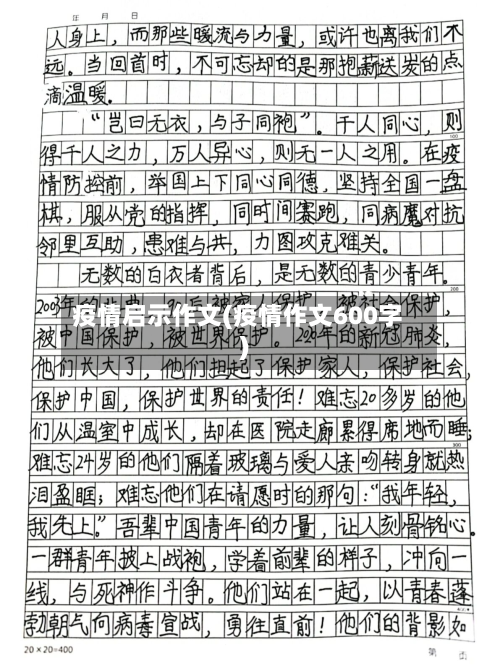 年 月 日
人身上，而那些暖流与力量，或许也离我们不
远。当回首时，不可忘却的是那抱薪送炭的点
滴温暖.
“岂曰无衣，与子同袍”。千人同心，则
100
得千人之力，万人异心，则无一人之用。在疫
情防控前，举国上下同心同德，坚持全国一盘
棋，服从党的指挥，同时间赛跑，同病魔对抗
邻里互助，患难与共，力图攻克难关。
无数的白衣者背后，是无数的青少年。
200
2003年的非典，90后被家人保护，被社会保护，
疫情启示作文(疫情作文600字
被中国保护，被世界保护。年的新冠肺炎，
)
他们长大了，他们担起了保护家人，保护社会，
保护中国，保护世界的责任！难忘20多岁的他
们从温室中成长，却在医院走廊累得席地而睡；
300
难忘24岁的他们隔着玻璃与爱人亲吻转身就热
泪盈眶；难忘他们在请愿时的那句：“我年轻，
我先上。”吾辈中国青年的力量，让人刻骨铭心。
一群青年披上战袍，学着前辈的样子，冲向一
线，与死神作斗争。他们站在一起，以青春蓬
勃朝气向病毒宣战，勇往直前！他们的背影如
20×20=400
第 页